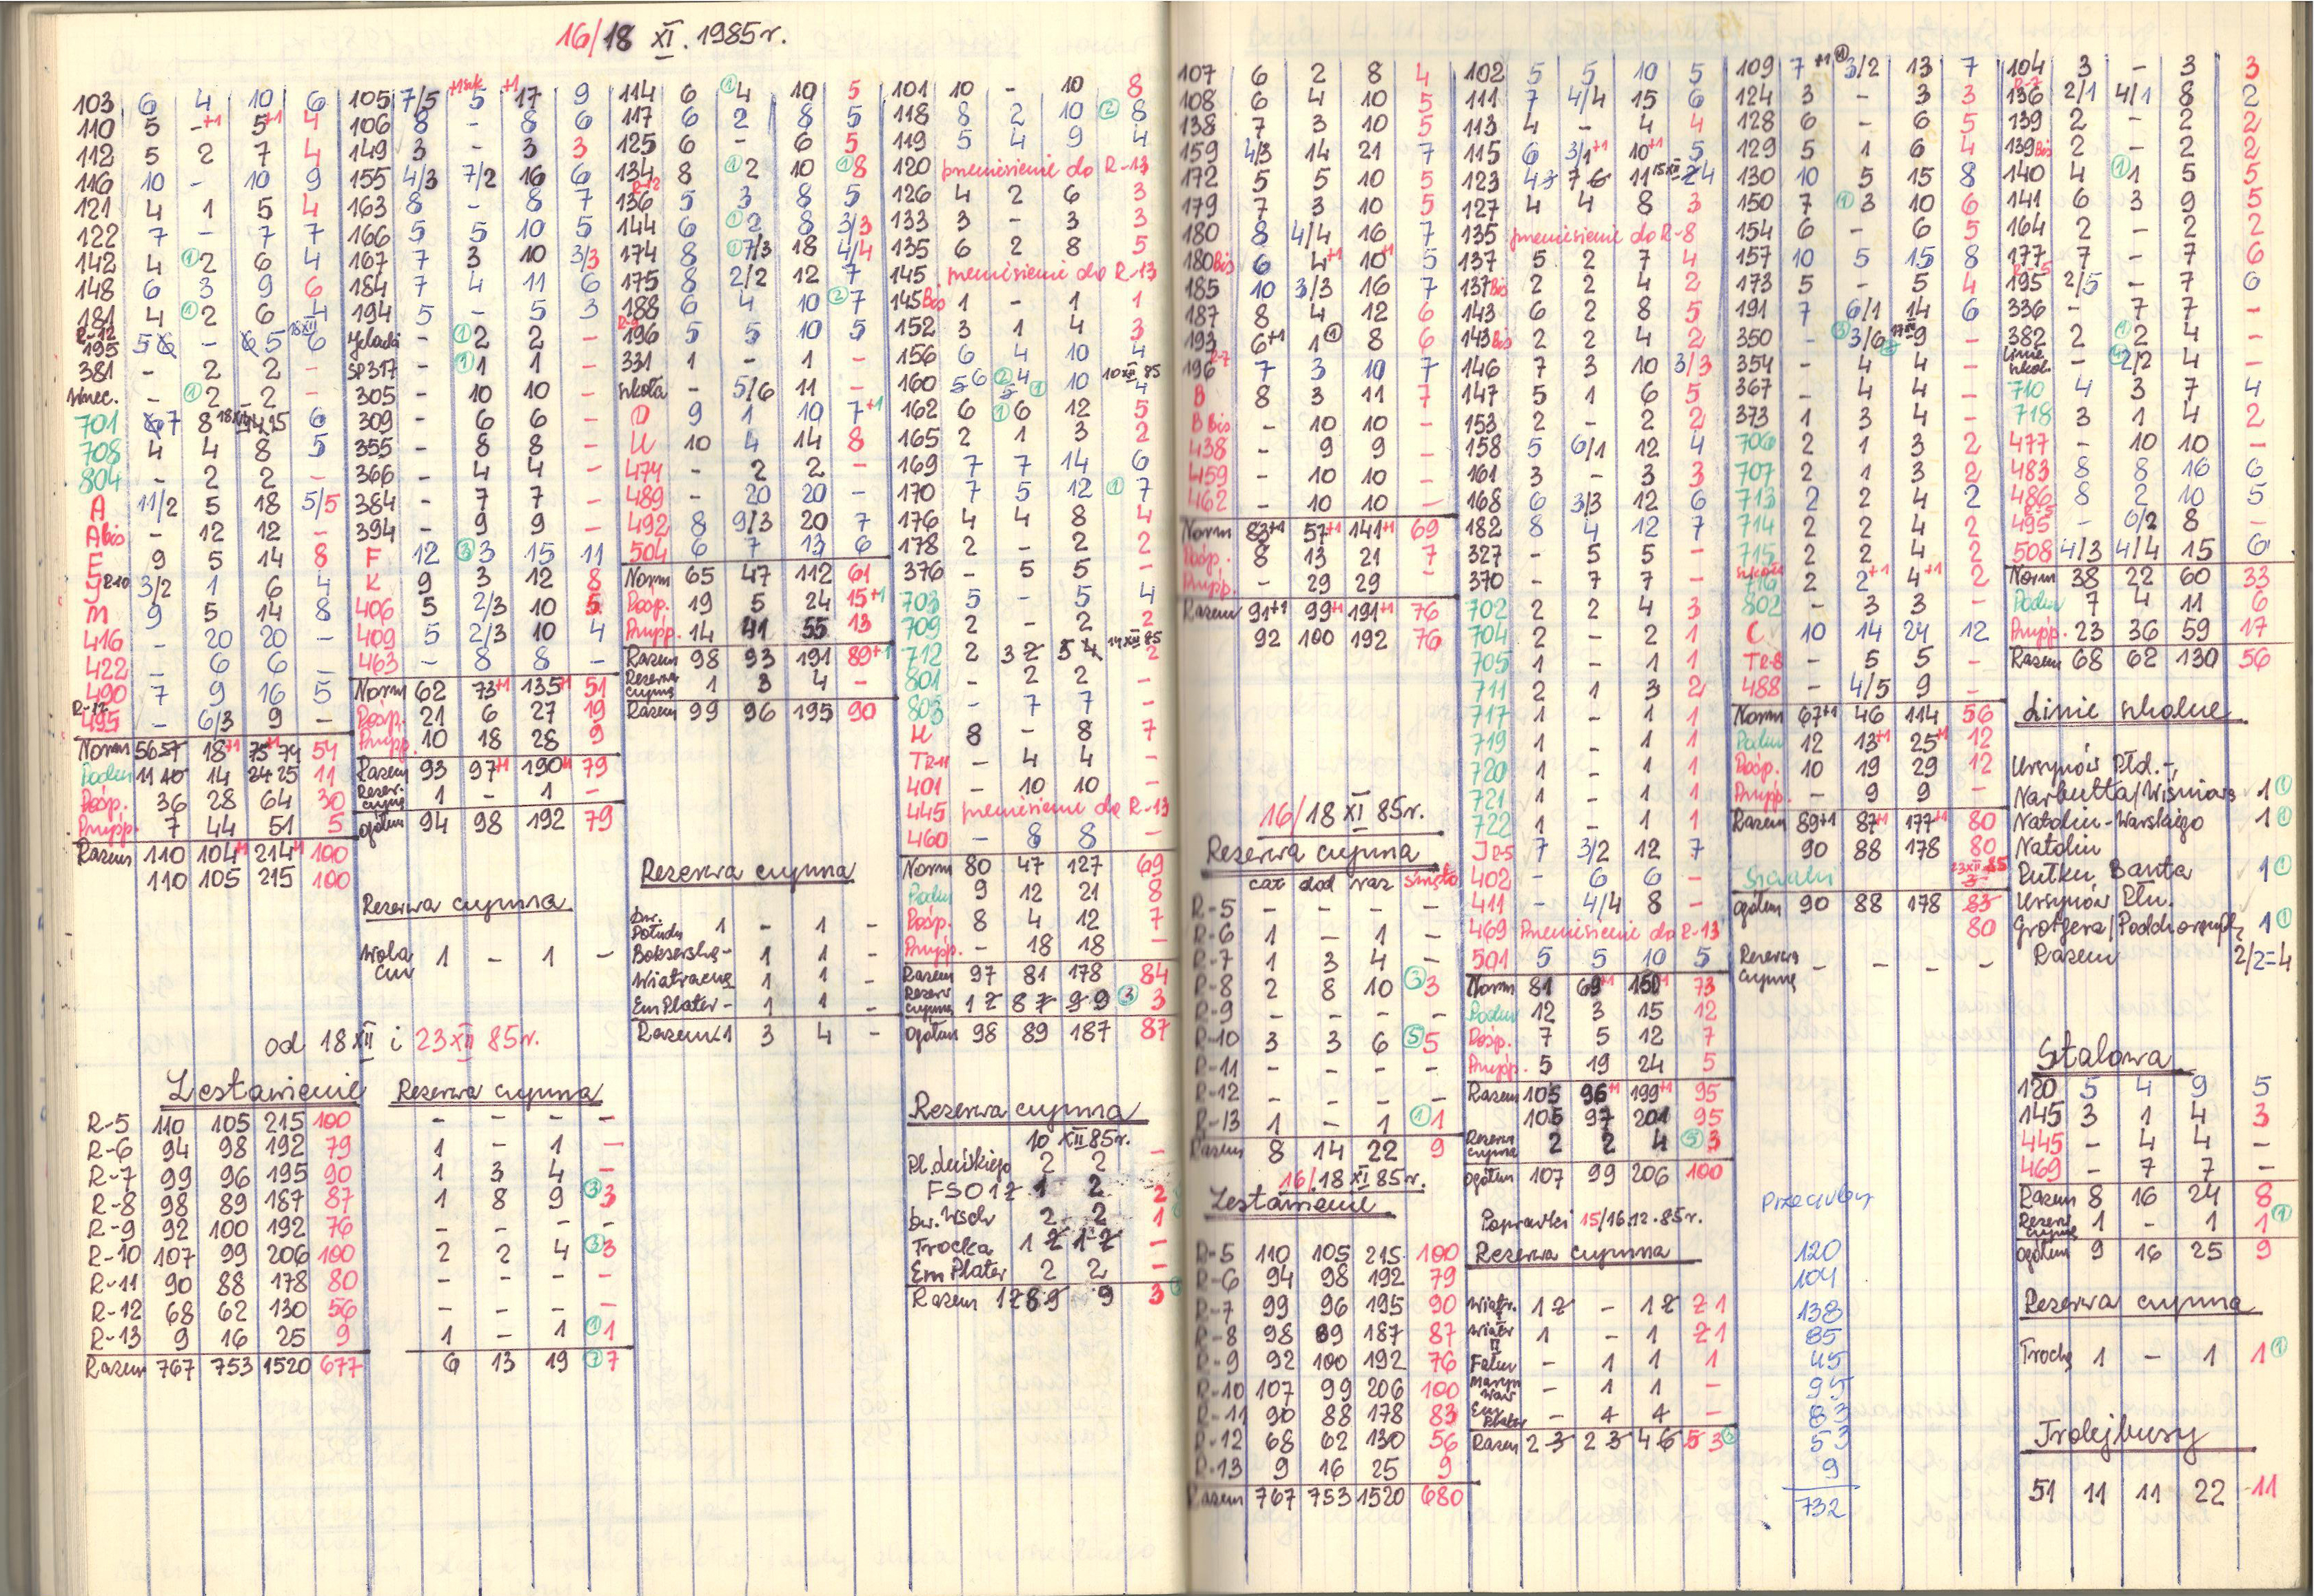 16/18 XI. 1985r.
103 6 4 10 6
110 5 -+1 5+1 4
112 5 2 7 4
116 10 - 10 9
121 4 1 5 4
122 7 - 7 7
142 4 ①2 6 4
148 6 3 9 6
181 4 ①2 6 4
R-12
195 5 6 - 6 5 18XII 6
381 - 2 2 -
①2 2 -
701 6 7 8 18XII 14 15 6
708 4 4 8 5
804 - 2 2 -
A 11/2 5 18 5/5
A bis - 12 12 -
E 9 5 14 8
J R10 3/2 1 6 4
M 9 5 14 8
416 - 20 20 -
422 - 6 6 -
490 7 9 16 5
R-12
495 - 6/3 9 -
Norm 56 57 18+1 75+1 74 54
Podm 11 10 14 24 25 11
Pośp. 36 28 64 30
Przysp. 7 44 51 5
Razem 110 104+1 214+1 100
110 105 215 100
105 7/5 5 +1 17 9
106 8 - 8 6
149 3 - 3 3
155 4/3 7/2 16 6
163 8 - 8 7
166 5 5 10 5
167 7 3 10 3/3
184 7 4 11 6
194 5 - 5 3
- ①2 2 -
SP317 - ①1 1 -
305 - 10 10 -
309 - 6 6 -
355 - 8 8 -
366 - 4 4 -
384 - 7 7 -
394 - 9 9 -
F 12 ③3 15 11
K 9 3 12 8
406 5 2/3 10 5
409 5 2/3 10 4
463 - 8 8 -
Norm 62 73+1 135+1 51
Pośp. 21 6 27 19
Przysp. 10 18 28 9
Razem 93 97+1 190+1 79
Rezer. czynna 1 - 1 -
Ogółem 94 98 192 79
Rezerwa czynna
Wola CW 1 - 1 -
114 6 ①4 10 5
117 6 2 8 5
125 6 - 6 5
134 8 ①2 10 ①8
R-12
136 5 3 8 5
144 6 ①2 8 3/3
174 8 ①7/3 18 4/4
175 8 2/2 12 7
188 6 4 10 ②7
R-9
196 5 5 10 5
331 1 - 1 -
szkoła - 5/6 11 -
D 9 1 10 7+1
U 10 4 14 8
474 - 2 2 -
489 - 20 20 -
492 8 9/3 20 7
504 6 7 13 6
Norm 65 47 112 61
Pośp. 19 5 24 15+1
Przysp. 14 41 55 13
Razem 98 93 191 89+1
Rezerwa czynna 1 3 4 -
Razem 99 96 195 90
Rezerwa czynna
Dw. Połudn 1 - 1 -
Bokserska - 1 1 -
Wiatraczna 1 1 -
Em Plater - 1 1 -
Razem 1 3 4 -
101 10 - 10 8
118 8 2 10 ②8
119 5 4 9 4
120 przeniesienie do R-13
126 4 2 6 3
133 3 - 3 3
135 6 2 8 5
145 przeniesienie do R-13
145 Bis 1 - 1 1
152 3 1 4 3
156 6 4 10 4
160 5 6 ②4 5 ① 10 10XII85 4
162 6 ①6 12 5
165 2 1 3 2
169 7 7 14 6
170 7 5 12 ①7
176 4 4 8 4
178 2 - 2 2
376 - 5 5 -
703 5 - 5 4
709 2 - 2 2
712 2 3 2 5 4 14XII85 2
801 - 2 2 -
803 - 7 7 -
H 8 - 8 7
TR11 - 4 4 -
401 - 10 10 -
445 przeniesienie do R-13
460 - 8 8 -
Norm 80 47 127 69
Podm 9 12 21 8
Pośp. 8 4 12 7
Przysp. - 18 18 -
Razem 97 81 178 84
Rezerw czynna 1 2 8 7 9 9 ③ 3
Ogółem 98 89 187 87
Rezerwa czynna
10 XII 85r.
Pl. Leńskiego 2 2 -
FSO 1 2 1 2 2
Dw. Wsch 2 2 1
Trocka 1 2 1 2 -
Em Plater 2 2 -
Razem 1 2 8 9 9 3
od 18 XII i 23 XII 85r.
Zestawienie Rezerwa czynna
R-5 110 105 215 100 - - - -
R-6 94 98 192 79 1 - 1 -
R-7 99 96 195 90 1 3 4 -
R-8 98 89 187 87 1 8 9 ③3
R-9 92 100 192 76 - - - -
R-10 107 99 206 100 2 2 4 ③3
R-11 90 88 178 80 - - - -
R-12 68 62 130 56 - - - -
R-13 9 16 25 9 1 - 1 ①1
Razem 767 753 1520 677 6 13 19 ⑦7
107 6 2 8 4
108 6 4 10 5
138 7 3 10 5
159 4/3 14 21 7
172 5 5 10 5
179 7 3 10 5
180 8 4/4 16 7
180 Bis 6 4+1 10+1 5
185 10 3/3 16 7
187 8 4 12 6
193 6+1 1① 8 6
196 R-7 7 3 10 7
B 8 3 11 7
B Bis - 10 10 -
438 - 9 9 -
459 - 10 10 -
462 - 10 10 -
Norm 83+1 57+1 141+1 69
Pośp. 8 13 21 7
Przysp. - 29 29 -
Razem 91+1 99+1 191+1 76
92 100 192 76
16/18 XI 85r.
Rezerwa czynna
cał dod raz święto
R-5 - - - -
R-6 1 - 1 -
R-7 1 3 4 -
R-8 2 8 10 ③3
R-9 - - - -
R-10 3 3 6 ⑤5
R-11 - - - -
R-12 - - - -
R-13 1 - 1 ①1
Razem 8 14 22 9
16/18 XI 85r.
Zestawienie
R-5 110 105 215 100
R-6 94 98 192 79
R-7 99 96 195 90
R-8 98 89 187 87
R-9 92 100 192 76
R-10 107 99 206 100
R-11 90 88 178 83
R-12 68 62 130 56
R-13 9 16 25 9
Razem 767 753 1520 680
102 5 5 10 5
111 7 4/4 15 6
113 4 - 4 4
115 6 3/1+1 10+1 5
123 4 3 7 6 11 15XII 2 4
127 4 4 8 3
135 przeniesienie do R-8
137 5 2 7 4
137 Bis 2 2 4 2
143 6 2 8 5
143 Bis 2 2 4 2
146 7 3 10 3/3
147 5 1 6 5
153 2 - 2 2
158 5 6/1 12 4
161 3 - 3 3
168 6 3/3 12 6
182 8 4 12 7
327 - 5 5 -
370 - 7 7 -
702 2 2 4 3
704 2 - 2 1
705 1 - 1 1
711 2 1 3 2
717 1 - 1 1
719 1 - 1 1
720 1 - 1 1
721 1 - 1 1
722 1 - 1 1
J R-5 7 3/2 12 7
402 - 6 6 -
411 - 4/4 8 -
469 Przeniesienie do R-13
501 5 5 10 5
Norm 81 69+1 150+1 73
Podm 12 3 15 12
Pośp. 7 5 12 7
Przysp. 5 19 24 5
Razem 105 96+1 199+1 95
105 97 201 95
Rezerw czynna 2 2 4 ③3
Ogółem 107 99 206 100
Poprawki 15/16.12.85r.
Rezerwa czynna
Wiatr. I 1 2 - 1 2 2 1
Wiatr II 1 - 1 2 1
Falen - 1 1 1
Marym Waw - 1 1 -
Em Plater - 4 4 -
Razem 2 3 2 3 4 6 5 3
109 7+1 ①3/2 13 7
124 3 - 3 3
128 6 - 6 5
129 5 1 6 4
130 10 5 15 8
150 7 ①3 10 6
154 6 - 6 5
157 10 5 15 8
173 5 - 5 4
191 7 6/1 14 6
350 - ③3/6 17XII 9 -
354 - 4 4 -
367 - 4 4 -
373 1 3 4 -
706 2 1 3 2
707 2 1 3 2
713 2 2 4 2
714 2 2 4 2
715 2 2 4 2
716 2 2+1 4+1 2
802 - 3 3 -
C 10 14 24 12
TR-8 - 5 5 -
488 - 4/5 9 -
Norm 67+1 46 114 56
Podm 12 13+1 25+1 12
Pośp. 10 19 29 12
Przysp. - 9 9 -
Razem 89+1 87+1 177+1 80
90 88 178 80
23XII 85
3
Ogółem 90 88 178 83
80
Rezerwa czynna - - - -
Przeguby
120
104
138
85
45
95
83
53
9
732
104 3 - 3 3
R-7
136 2/1 4/1 8 2
139 2 - 2 2
139 Bis 2 - 2 2
140 4 ①1 5 5
141 6 3 9 5
164 2 - 2 2
177 7 - 7 6
R-5
195 2/5 - 7 6
336 - 7 7 -
382 2 ①2 4 -
Linie szkol. - ④2/2 4 -
710 4 3 7 4
718 3 1 4 2
477 - 10 10 -
483 8 8 16 6
486 8 2 10 5
R-5
495 - 6/2 8 -
508 4/3 4/4 15 6
Norm 38 22 60 33
Podm 7 4 11 6
Przysp. 23 36 59 17
Razem 68 62 130 56
Linie szkolne
Ursynów Płd.-,
Narbutta/Wiśniows 1①
Natolin-Warskiego 1①
Natolin
Pułku Baszta 1①
Ursynów Płn.
Grotgera/Podchorążych 1①
Razem 2/2=4
Stalowa
120 5 4 9 5
145 3 1 4 3
445 - 4 4 -
469 - 7 7 -
Razem 8 16 24 8
Rezerw czynna 1 - 1 1①
Ogółem 9 16 25 9
Rezerwa czynna
Trocka 1 - 1 1①
Trolejbusy
51 11 11 22 11